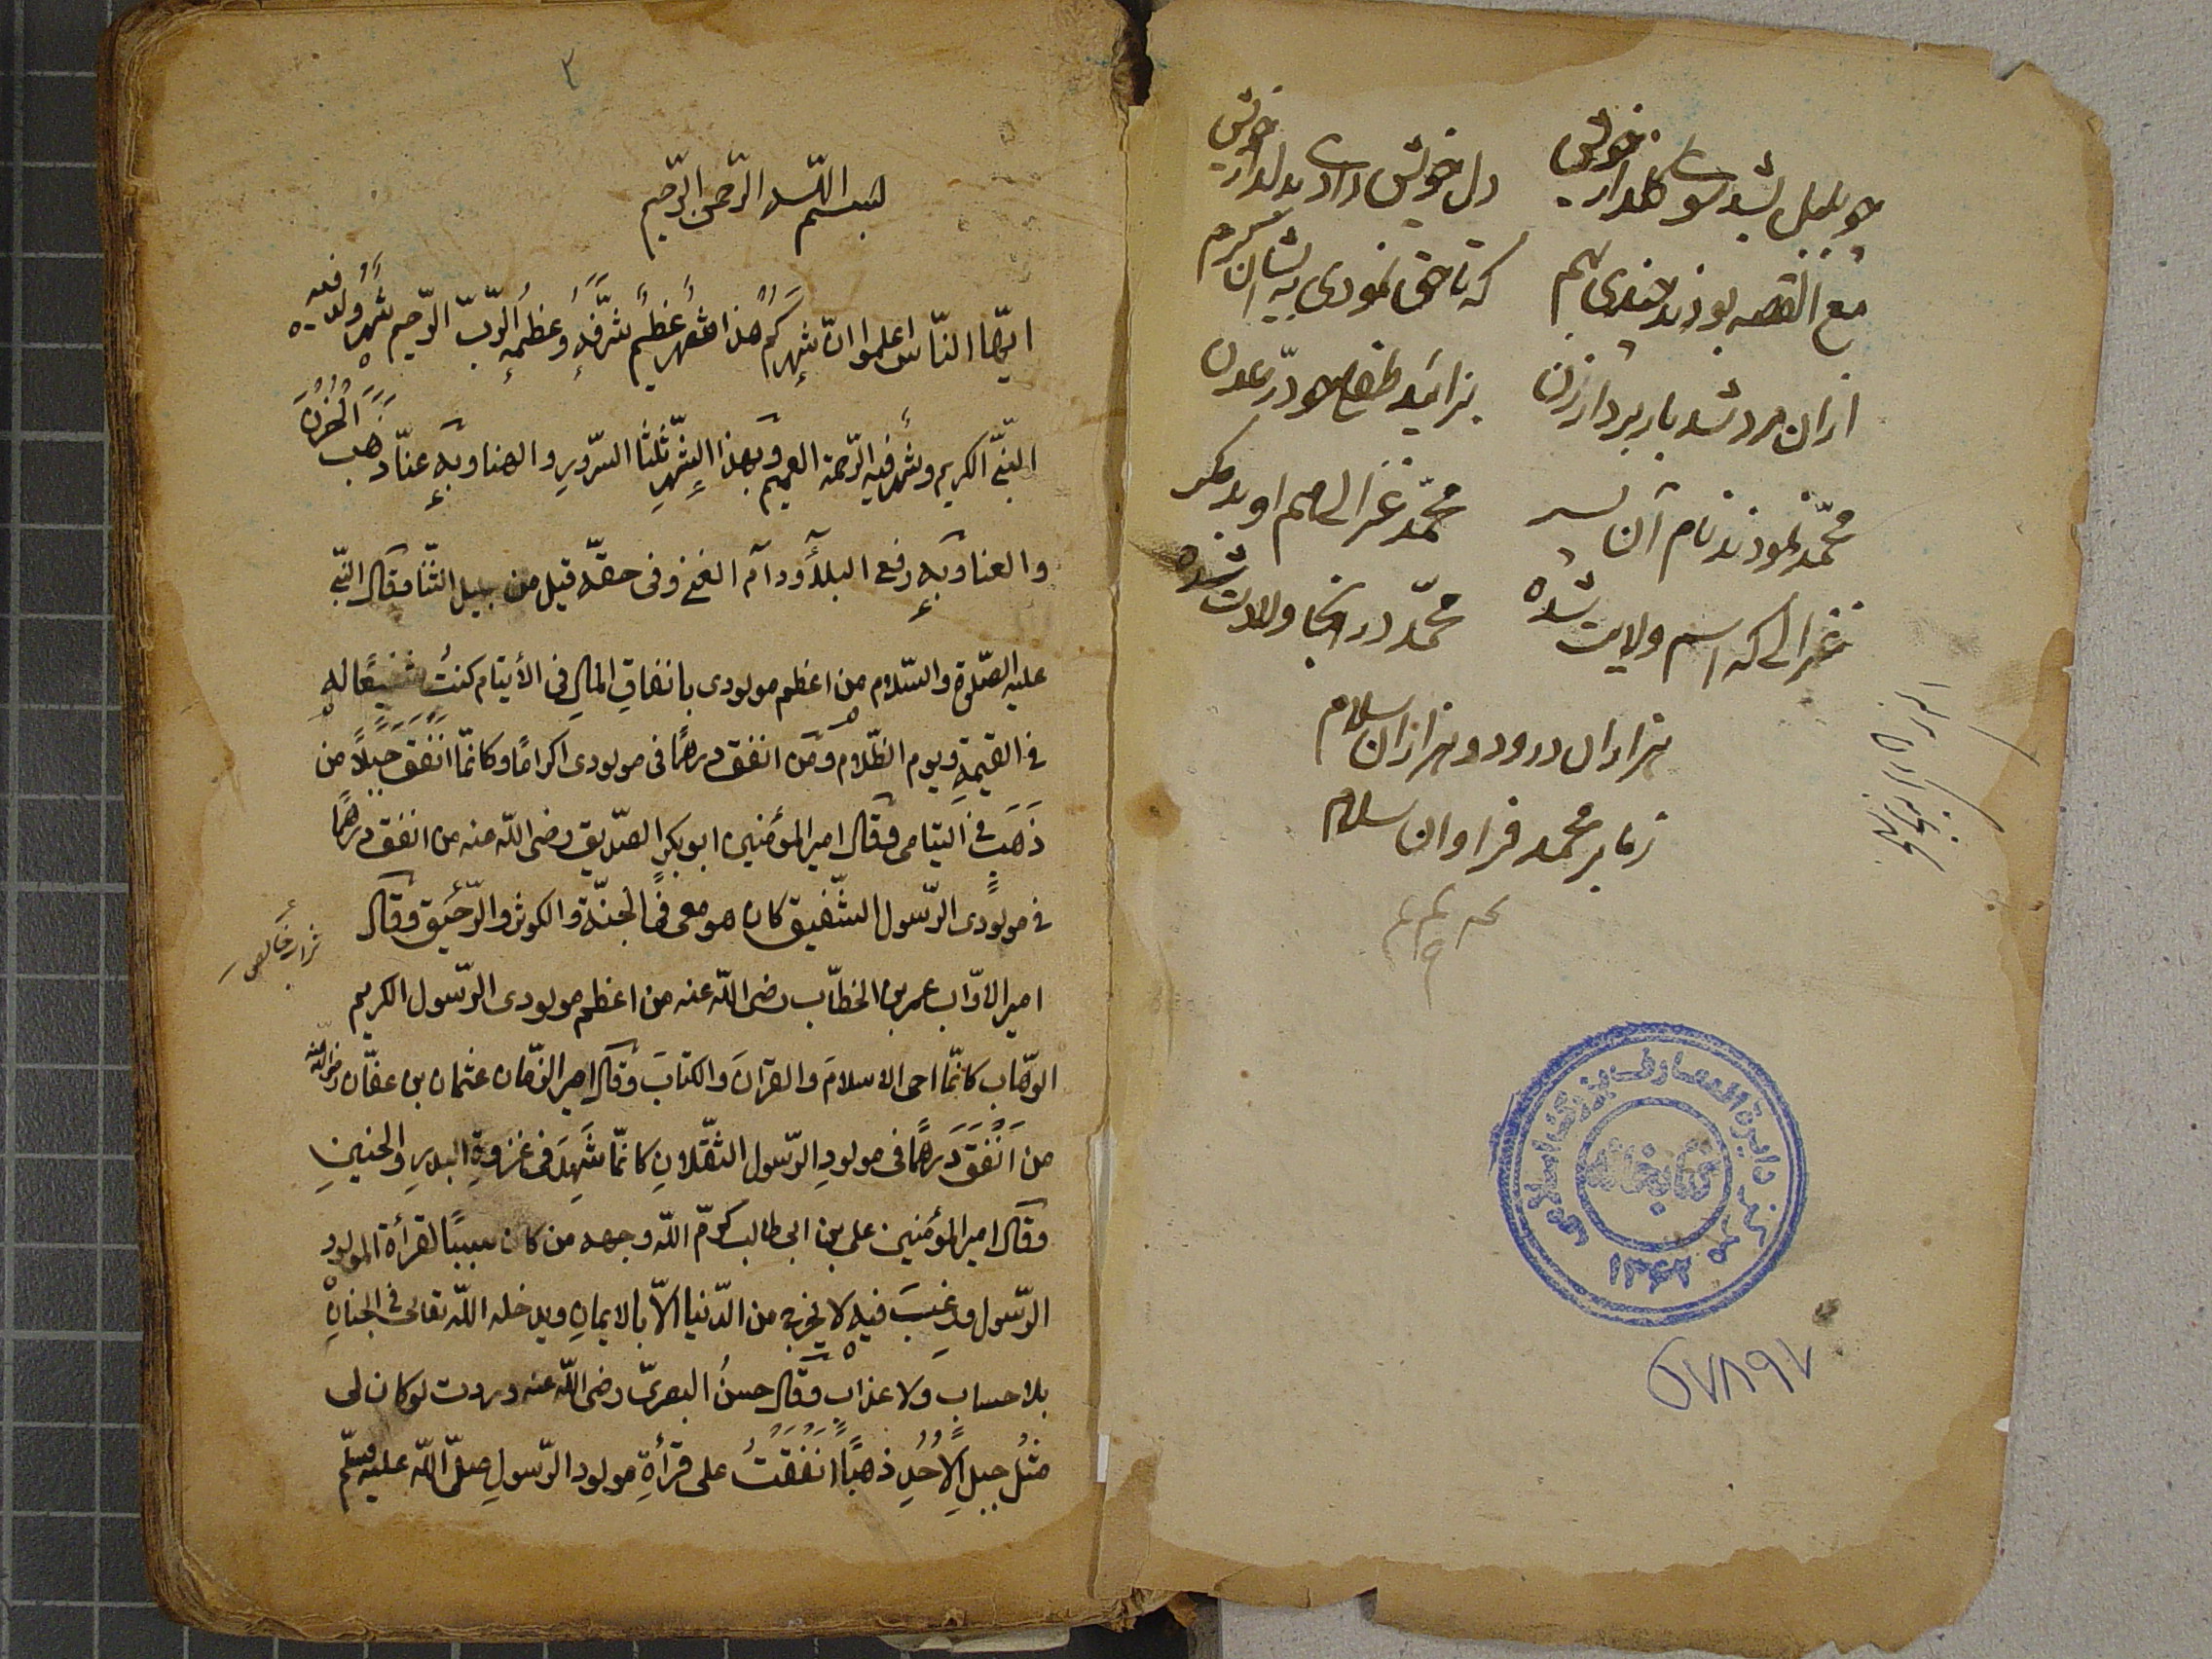 چو بلبل بشد سوی گلدار خویش
دل خویش دادی بدلدار خویش
مع القصه بودند چندی بهم
که تا حق نمودی بایشان کرم
ازان مرد شد باربردار زن
بزائید طفلی چو درّ عدن
محمّد نمودند نام آن پسر
محمّد غزالی هم او بد مگر
غزالی که اسم ولایت شده
محمّد در آنجا ولادت شده
هزاران درود و هزاران سلام
زما بر محمد فراوان سلام
مرکز دایرة المعارف بزرگ اسلامی
کتابخانه
۱۳۶۲
۵۷۸۹۷
۲
بسم اللّه الرّحمن الرّحیم
ایّها النّاس اعلموا انّ شهرکم هذا شهر عُظم شرّفه و عظمه الرّبّ الرّحیم شهر وُلد فیه
النّبیّ الکریم و نشر فیه الرّحمة العمیم و بهذا الشّهر ثلثا السّرویر و الهنا و به عنّا ذهب الحزن
و العنا و به رفع البلآء و دآم الغنی و فی حقّه قیل من جمیل الثّنا و قال النّبیّ
علیه الصّلوة و السّلام من اعظم مولودی بانفاق المال فی الأیتام کنتُ شفیعًا له
فی القیمة و یوم الظّلام و من انفق درهمًا فی مولودی اکرامًا و کانّما انفق جبلاً من
ذَهَبٍ فی الیتامی و قال امیر المؤمنین ابوبکر الصّدیق رضی اللّه عنه من انفق درهمًا
فی مولودی الرّسول الشّفیق کان هو معی فی الجنّة و الکوثر و الرّحیق و قال
شراب خالص
امیر الاوّاب عمر بن الخطّاب رضی اللّه عنه من اعظم مولودی الرّسول الکریم
الوهّاب کانّما احی الاسلامَ و القرآنَ و الکتابَ و قال امیر الزّمان عثمان بن عفّان رضی اللّه عنه
من اَنْفَقَ دَرهمًا فی مولودِ الرّسول الثّقلانِ کانّما شَهِدَ فی غزوةِ البدرِ و الحنینِ
و قال امیر المؤمنین علی بن ابی طالب کرّم اللّه وجهه من کان سببًا لقرأة المولود
الرّسول و رغبَ فیه لا یخرج من الدّنیا الاّ بالایمانِ و یدخله اللّه تعالی فی الجنانِ
بلا حساب و لا عذاب و قال حسنُ البصریّ رضی اللّه عنه وددت لو کان لی
مثلُ جبلِ الاُحُدِ ذهبًا انفقتُ علی قرأةِ مولود الرّسولِ صلّی اللّه علیه و سلّم